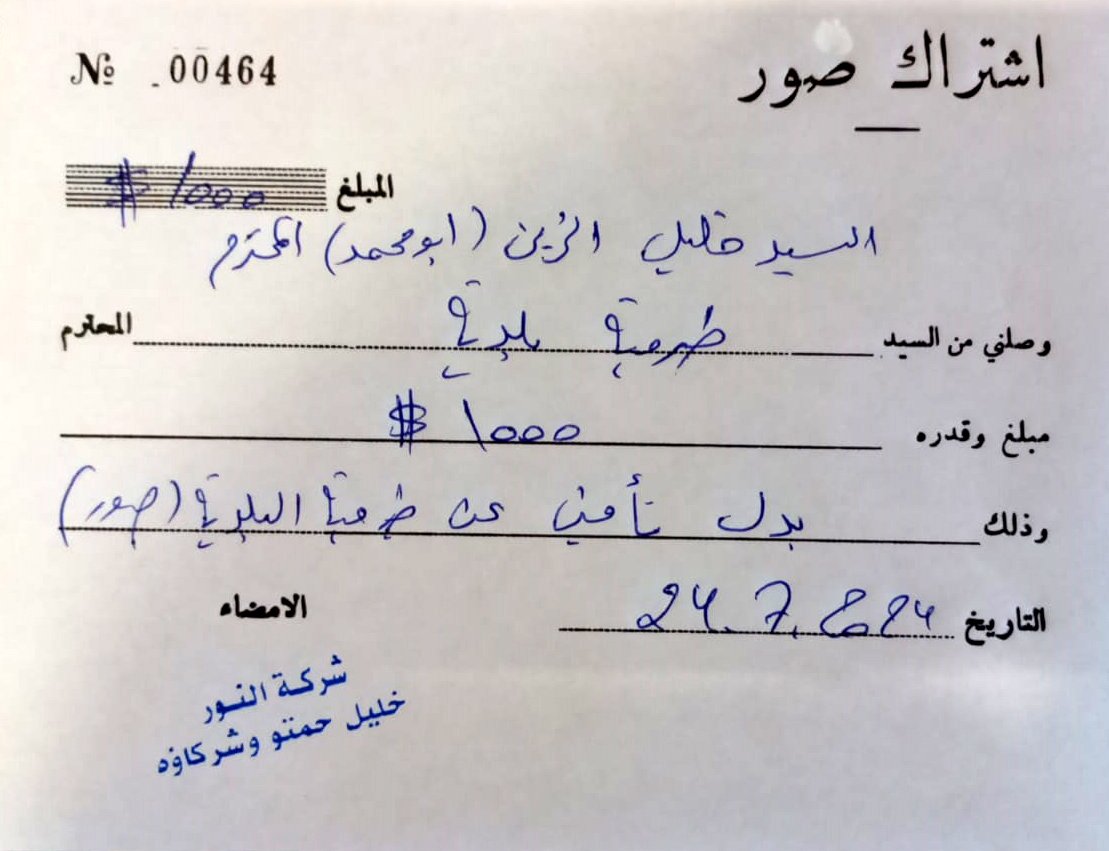 اشتراك صور
№ 00464
المبلغ 1000 $
السيد خليل الزين (ابو محمد) المحترم
وصلني من السيد طرمبة بلدية المحترم
مبلغ وقدره 1000 $
وذلك بدل تأمين عن طرمبة البلدية (صور)
التاريخ 24.7.2024
الامضاء
شركة النور
خليل حمتو وشركاؤه